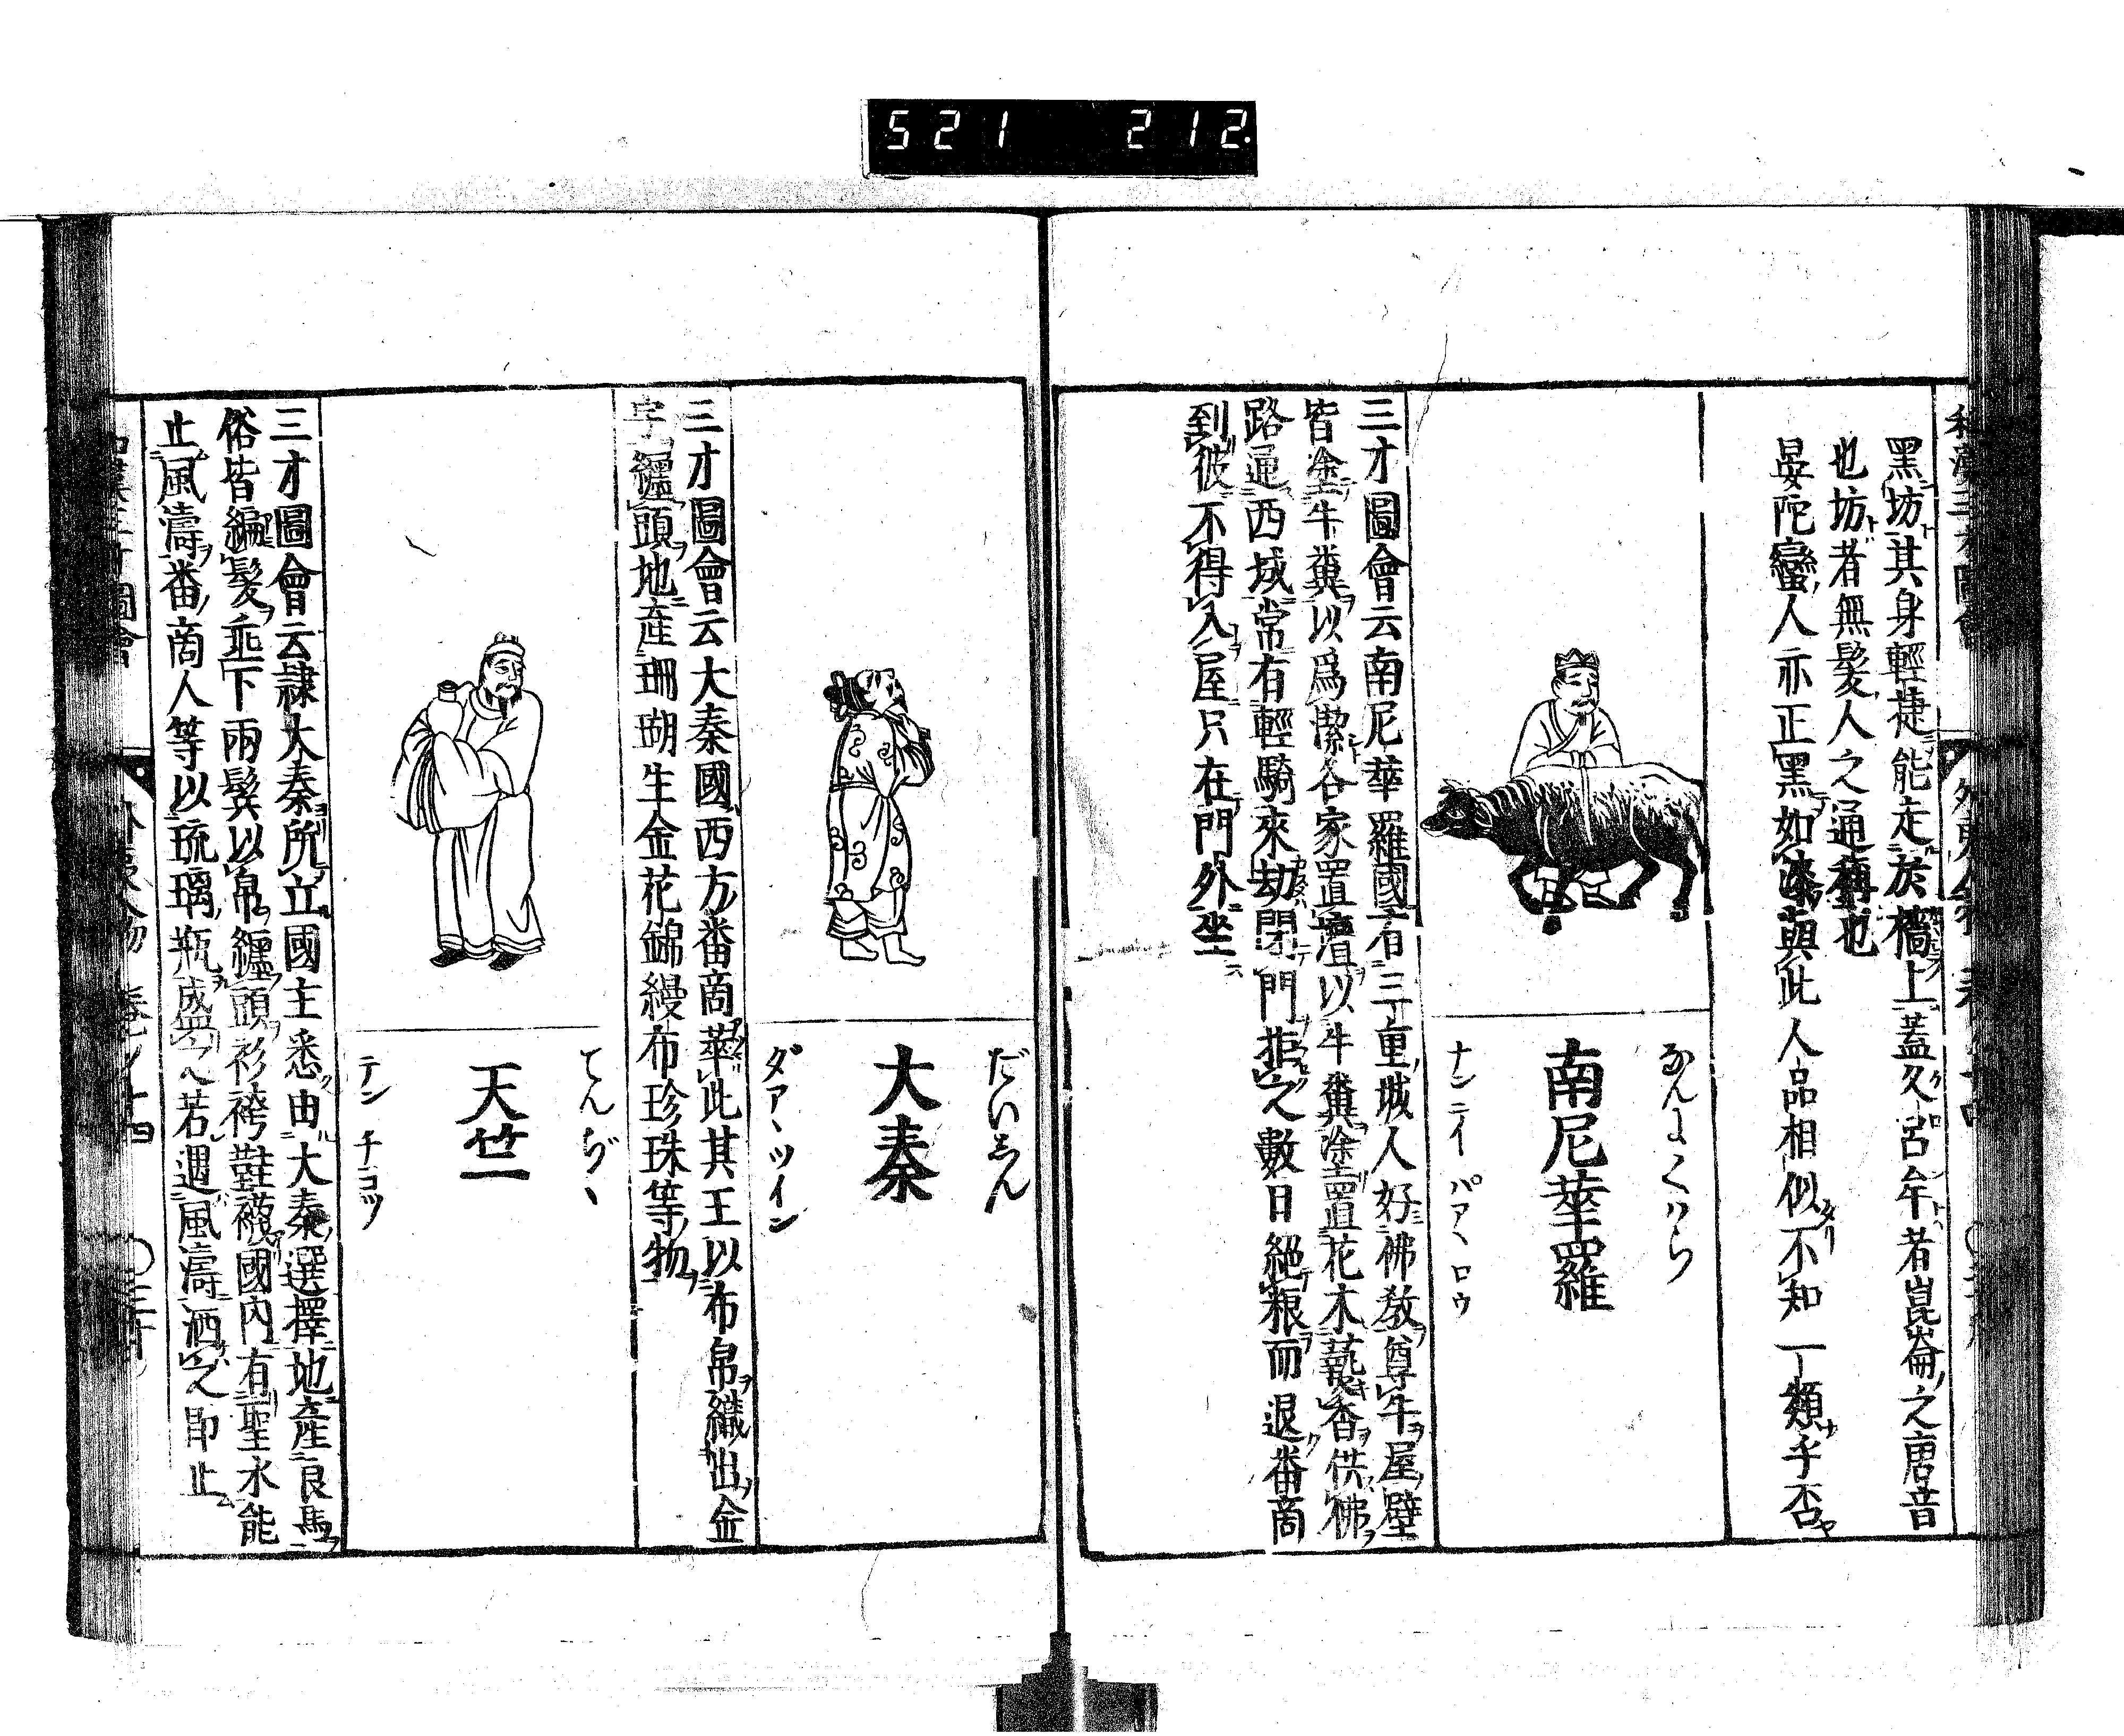 521 212.
黑坊其身輕捷能走於檣上蓋久呂牟者崑崙之唐音
也坊者無髮人之通稱也
晏陀蠻人亦正黑如漆與此人品相似不知一丁類乎否
なんにくハら
南尼華羅
ナンニイパアヽロウ
三才圖會云南尼華羅國有三重城人好佛教尊牛屋壁
皆塗牛糞以爲潔各家置壇以牛糞塗置花木藝香供佛
路通西域常有輕騎來劫閉門拒之數日絕粮而退番商
到彼不得入屋只在門外坐
だいしん
大秦
ダアヽツイン
三才圖會云大秦國西方番商萃此其王以布帛織出金
字纏頭地產珊瑚生金花錦縵布珍珠等物
てんぢヽ
天竺
テンチヨツ
三才圖會云隷大秦所立國主悉由大秦選擇地產良馬
俗皆編髮垂下兩鬢以帛纏頭衫袴鞋襪國內有聖水能
止風濤番商人等以琉璃瓶盛之若遇風濤洒之即止